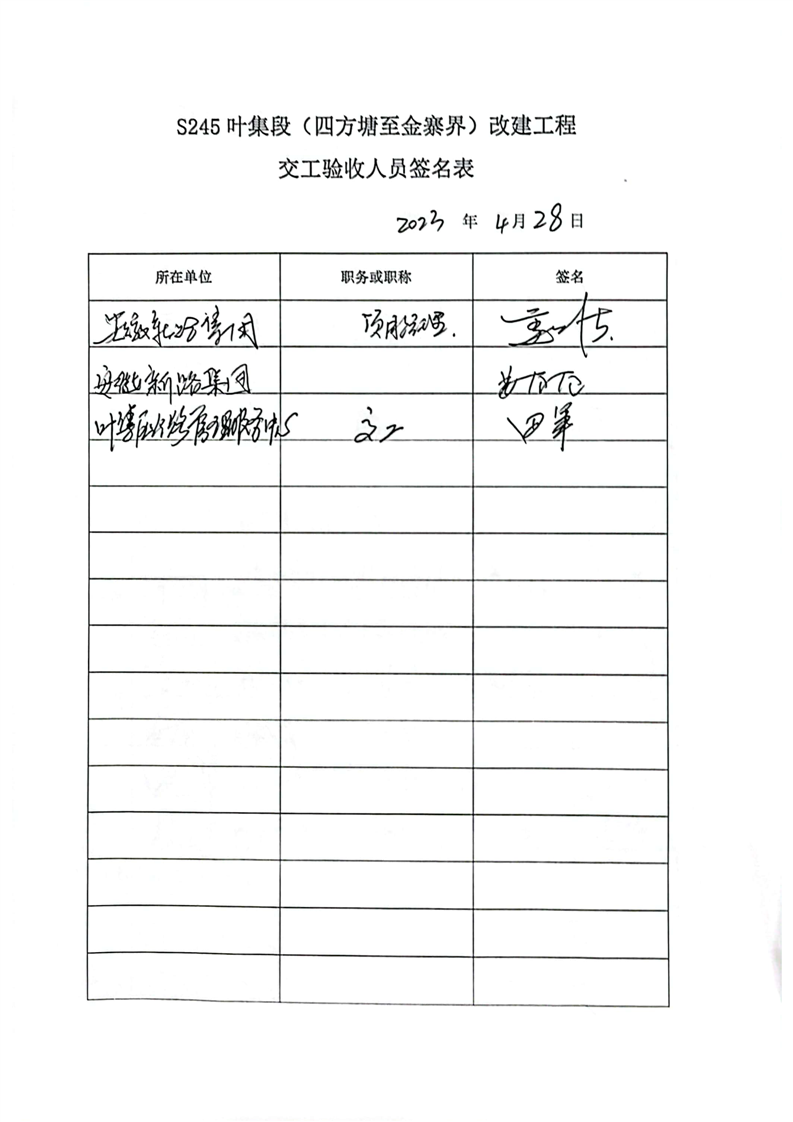 S245 叶集段（四方塘至金寨界）改建工程
交工验收人员签名表
2023 年 4月28日
所在单位 职务或职称 签名
项目经理.
安徽新路集团
叶集区公路管理服务中心 田军